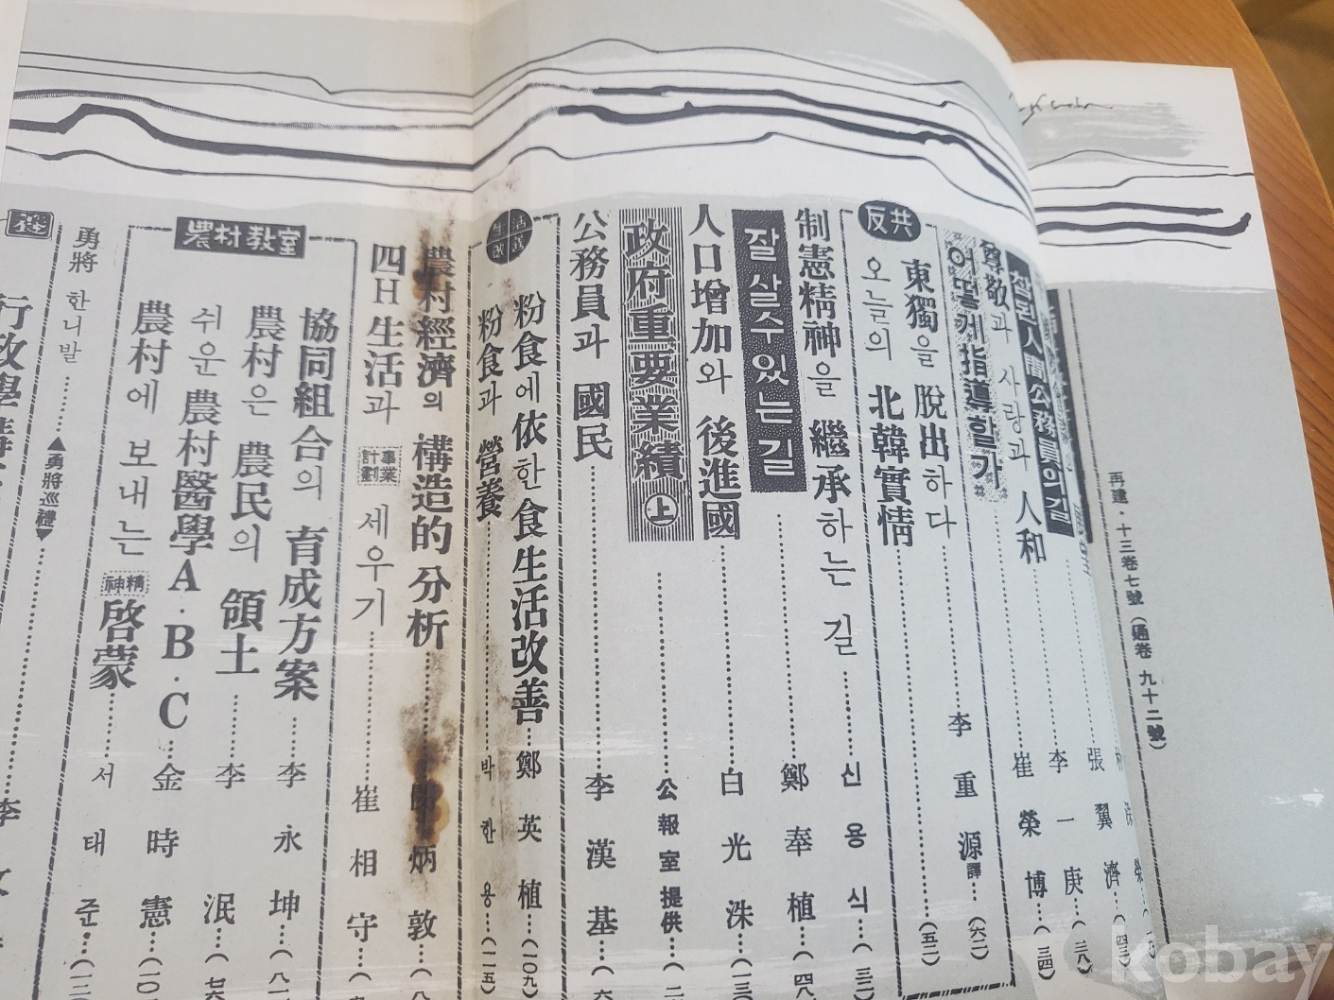 再建・十三卷七號 (通卷 九十二號)
人間公務員의 길
張翼濟…(四三)
어떻게 指導할가
李一庚…(三八)
尊敬과 사랑과 人和
崔榮博…(三四)
反共
東獨을 脫出하다……李重源譯…(六二)
오늘의 北韓實情……(五二)
制憲精神을 繼承하는 길……신용식…(三二)
잘 살수있는 길……鄭奉植…(四八
人口增加와 後進國……白光洙…(一三
政府重要業績 上……公報室 提供…(二
公務員과 國民……李漢基…(六
生活改善
粉食에 依한 食生活改善…鄭英植…(一〇九)
粉食과 營養……박한용…(一一五)
農村經濟의 構造的 分析……炳敦…(八
四H生活과 事業計劃 세우기……崔相守…(
農村敎室
協同組合의 育成方案……李永坤…(八一
農村은 農民의 領土……李泯…(七六
쉬운 農村醫學A・B・C…金時憲…(一〇
農村에 보내는 精神啓蒙……서태준…(一二
勇將 한니발……▲勇將巡禮▼……
行政學講
李
kobay